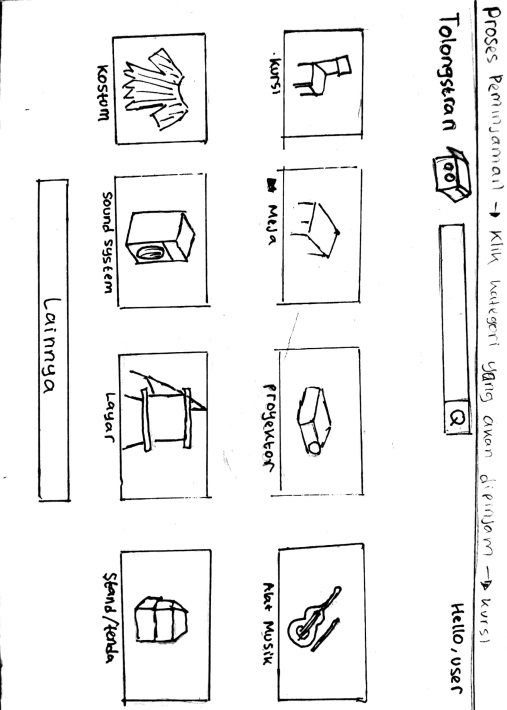 Proses Peminjaman → Klik kategori yang akan dipinjam → kursi
Tolongstran
Q
Hello, user
kursi
Meja
proyektor
Alat Musik
kostum
sound system
Layar
Stand/tenda
Lainnya